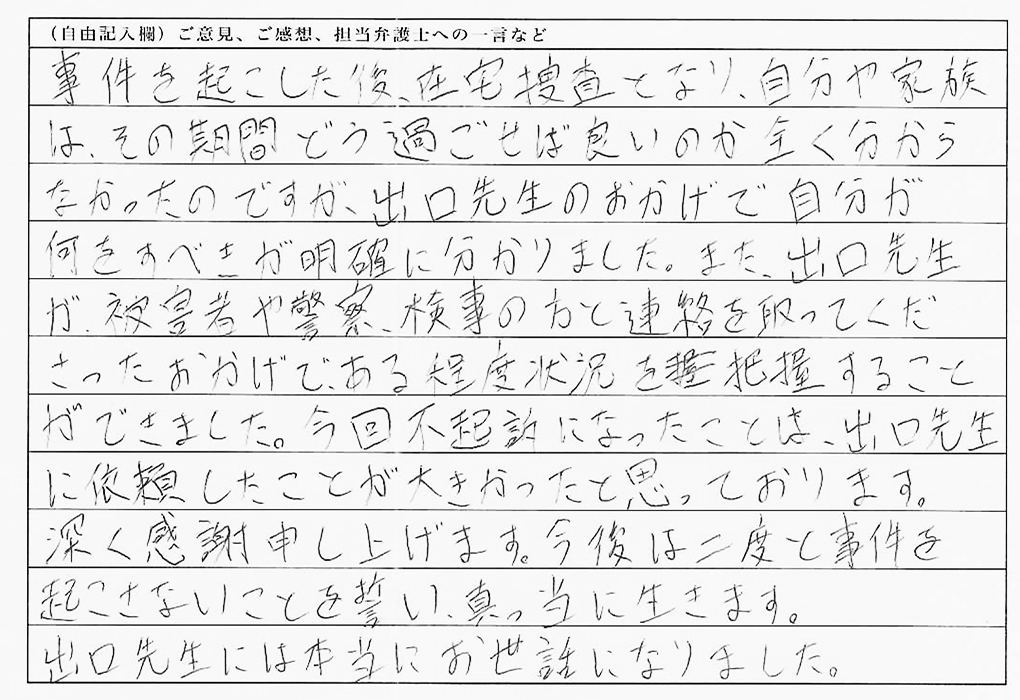 （自由記入欄）ご意見、ご感想、担当弁護士への一言など
事件を起こした後、在宅捜査となり、自分や家族
は、その期間どう過ごせば良いのか全く分から
なかったのですが、出口先生のおかげで自分が
何をすべきか明確に分かりました。また、出口先生
が、被害者や警察、検事の方と連絡を取ってくだ
さったおかげで、ある程度状況を把握すること
ができました。今回不起訴になったことは、出口先生
に依頼したことが大きかったと思っております。
深く感謝申し上げます。今後は二度と事件を
起こさないことを誓い、真っ当に生きます。
出口先生には本当にお世話になりました。